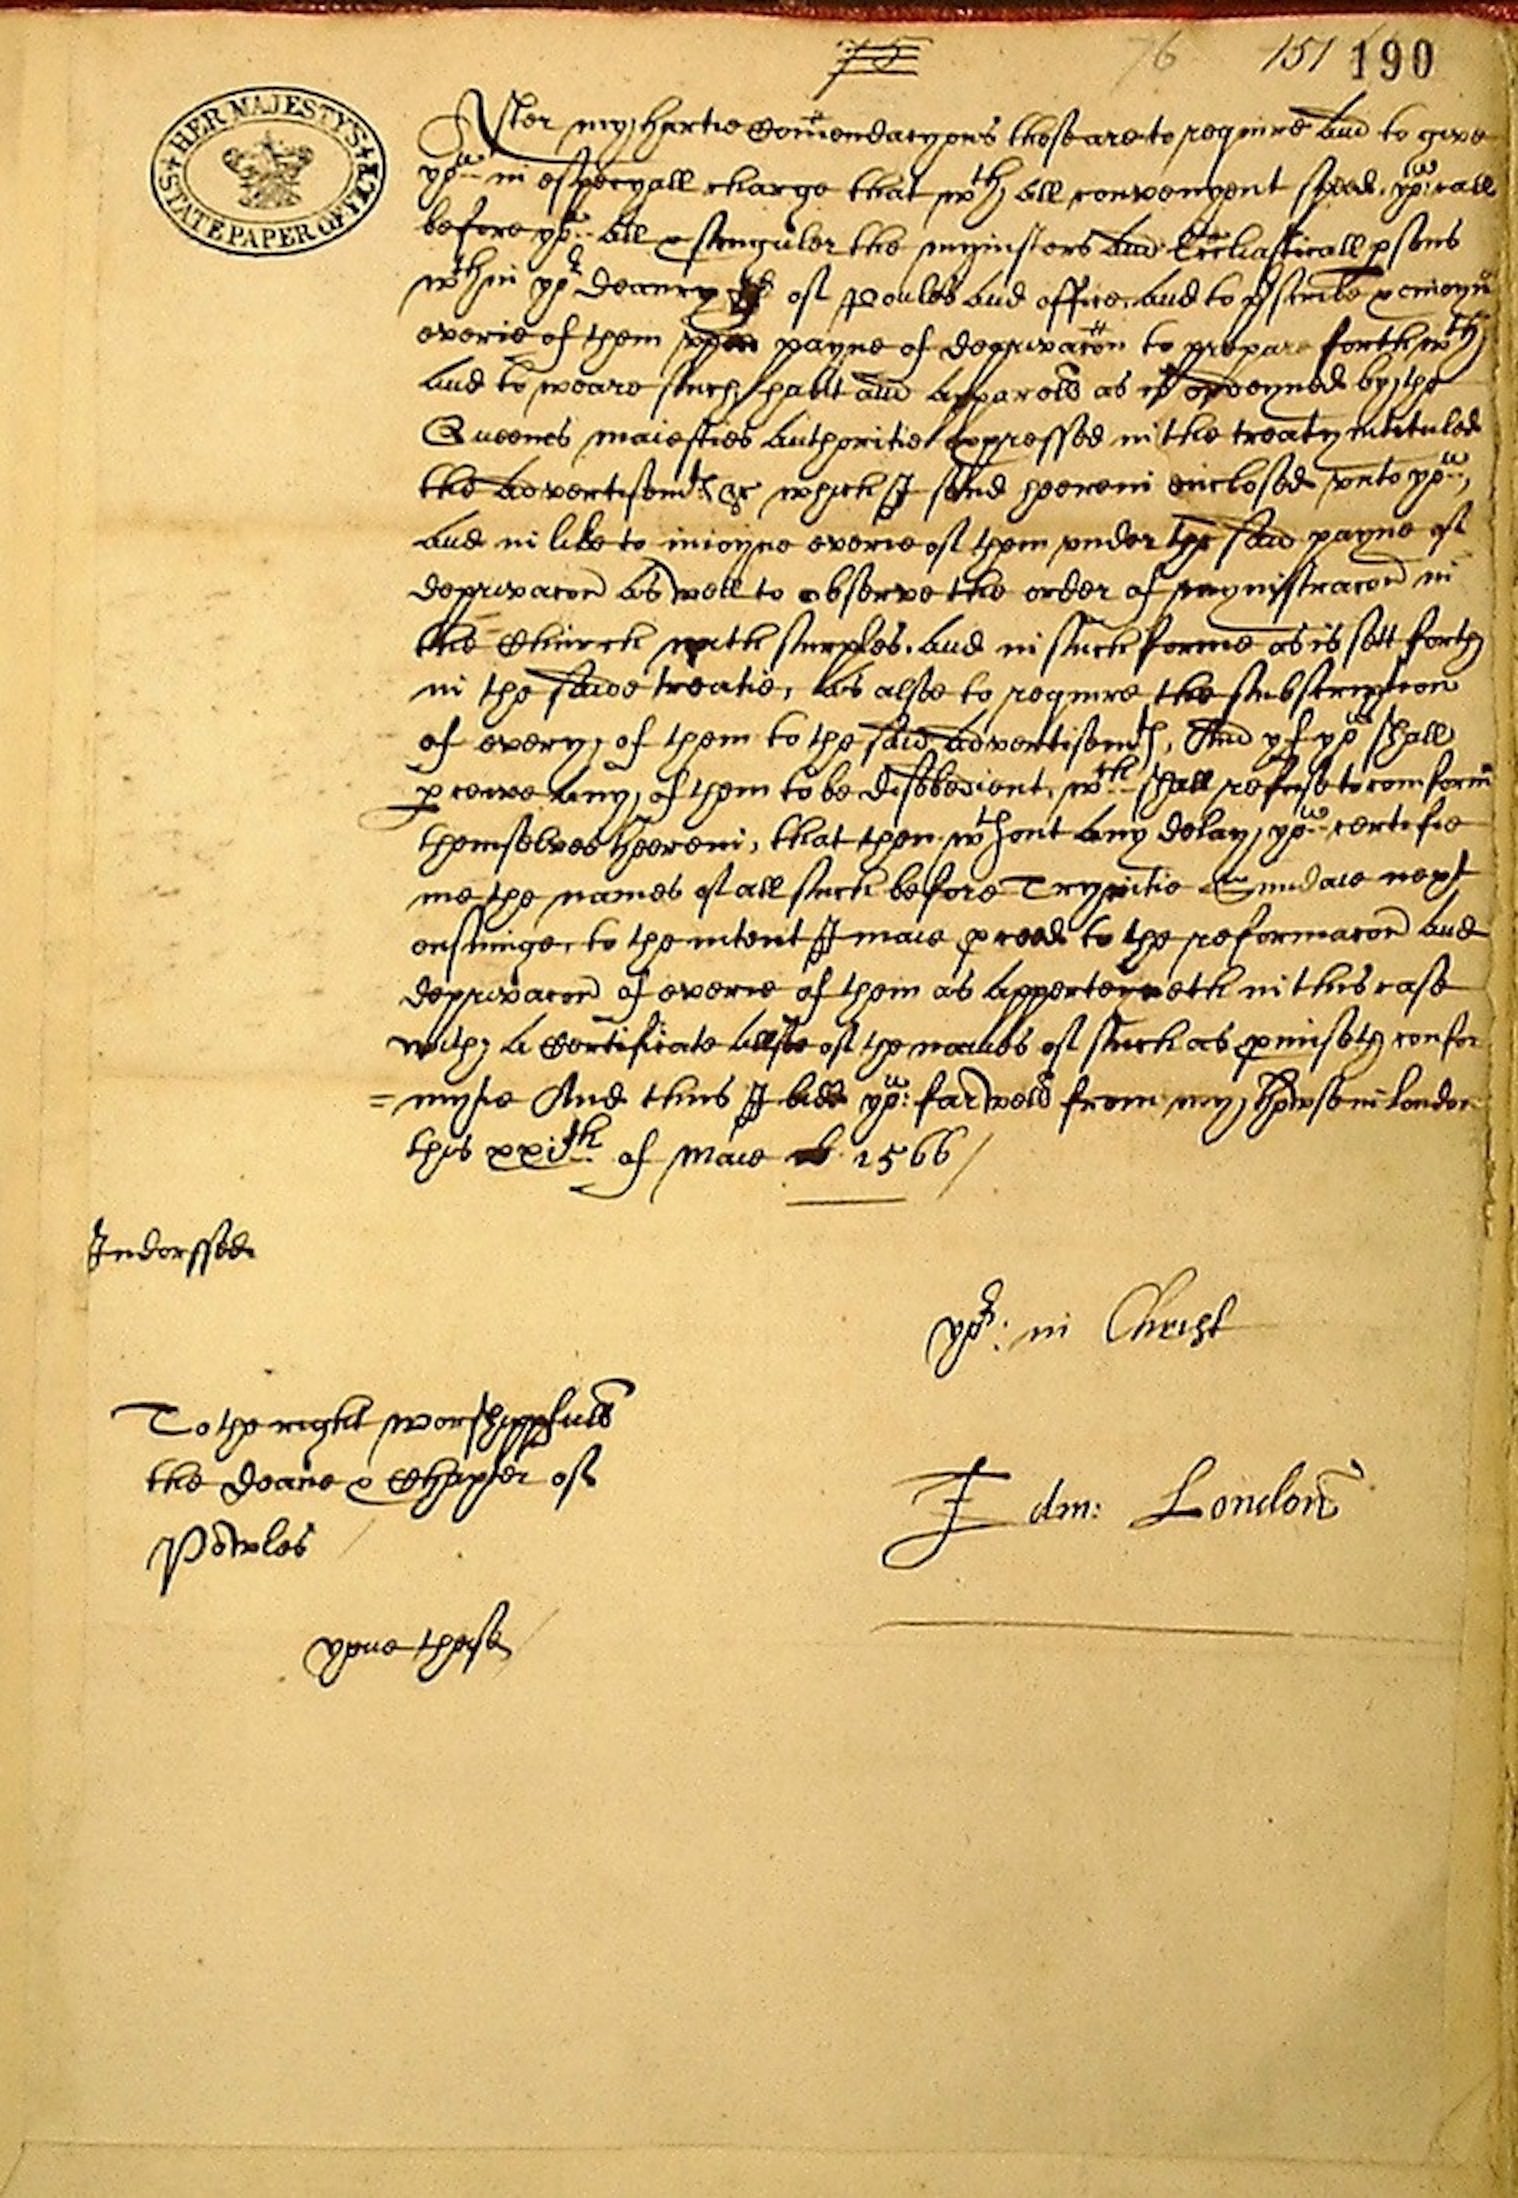 75 76 151 190
HER MAJESTY'S STATE PAPER OFFICE
After my hartie Comendacyons these are to require and to geve
yow in especyall charge that wth all convenyent speed yow call
before yow all & singuler the mynisters and Ecclasticall psons
wthin yor deanry of Poules and office, and to pscribe & enioyn
everie of them uppon payne of deprivacon to prepare forthwth
and to weare such habit and apparell as is ordeyned by the
Queenes maiesties authoritie expressed in the treaty intituled
the advertisemts &c which I send heerein enclosed unto yow,
and in like to inioyne everie of them under the said payne of
deprivacon as well to observe the order of mynistracon in
the Church with surples, and in such forme as is sett forth
in the saide treatie, as alsoe to require the subscription
of every of them to the said advertisemts, And yf yow shall
pceive any of them to be disobedient, wch shall refuse to conform
themselves heerein, that then wthout any delay yow certifie
me the names of all such before Trynitie Sundaie next
ensuinge, to the intent I maie pceed to the reformacon and
deprivacon of everie of them as apperteyneth in this case
with a certificate allsoe of the names of such as pmiseth confor
=mytie And thus I bidd yow: farwell from my howse in London
this xxith of Maie 1566 /
Indorssed
yor: in Christ
To the right worshippfull
the Deane & Chapter of
Powles
Edm: London
yeve these